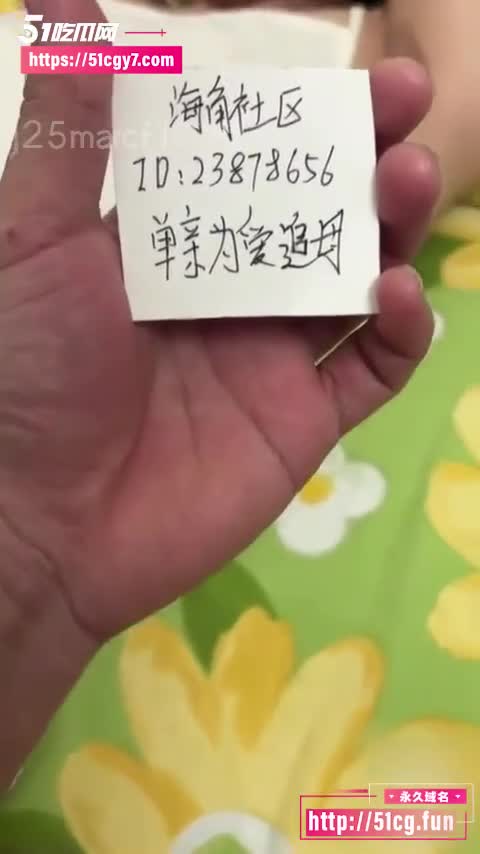 51吃瓜网
https://51cgy7.com
海角社区
ID:23878656
单亲为爱追母
永久域名
http://51cg.fun